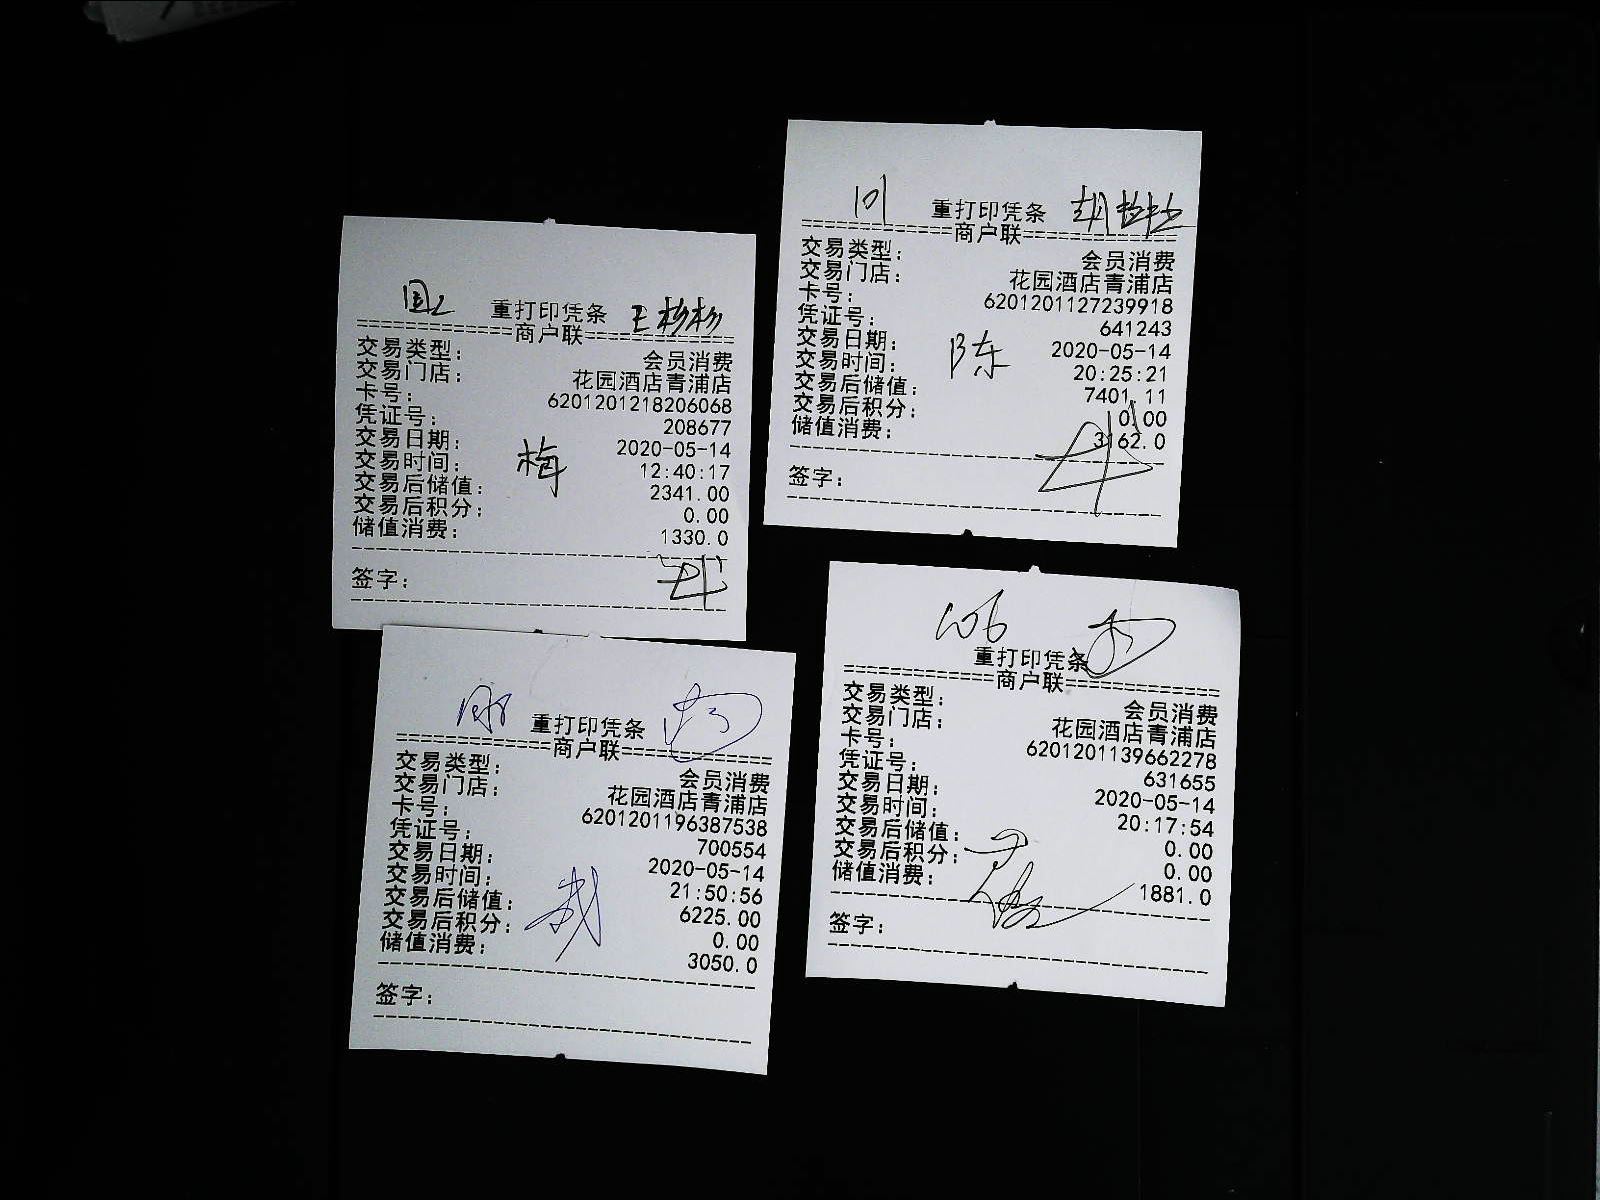 重打印凭条 王杉杉
============商户联============
交易类型: 会员消费
交易门店: 花园酒店青浦店
卡号: 6201201218206068
凭证号: 208677
交易日期: 2020-05-14
交易时间: 12:40:17
交易后储值: 2341.00
交易后积分: 0.00
储值消费: 1330.0
梅
签字:
101 重打印凭条
============商户联============
交易类型: 会员消费
交易门店: 花园酒店青浦店
卡号: 6201201127239918
凭证号: 641243
交易日期: 2020-05-14
交易时间: 20:25:21
交易后储值: 7401.11
交易后积分: 0.00
储值消费: 3162.0
陈
签字:
重打印凭条
============商户联============
交易类型: 会员消费
交易门店: 花园酒店青浦店
卡号: 6201201196387538
凭证号: 700554
交易日期: 2020-05-14
交易时间: 21:50:56
交易后储值: 6225.00
交易后积分: 0.00
储值消费: 3050.0
签字:
重打印凭条
============商户联============
交易类型: 会员消费
交易门店: 花园酒店青浦店
卡号: 6201201139662278
凭证号: 631655
交易日期: 2020-05-14
交易时间: 20:17:54
交易后储值: 0.00
交易后积分: 0.00
储值消费: 1881.0
签字: